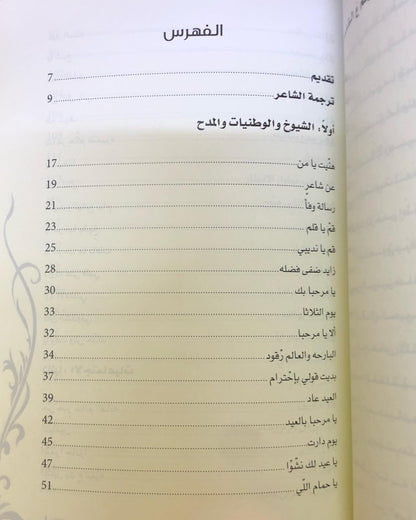 الفهرس
تقديم 7
ترجمة الشاعر 9
أولاً: الشيوخ والوطنيات والمدح
هنّيت يا من 17
عن شاعرٍ 19
رسالة وفاْ 21
قمْ يا قلم 23
قم يا نديبي 25
زايد ضفى فضله 28
يا مرحبا بك 30
يوم الثلاثا 33
ألا يا مرحبا 32
البارحه والعالم رْقود 34
بديت قولي بإحْترام 37
العيد عاد 39
يا مرحبا بالعيد 42
يوم دارت 45
يا عيد لك نشوْا 47
يا حمام اللّي 51